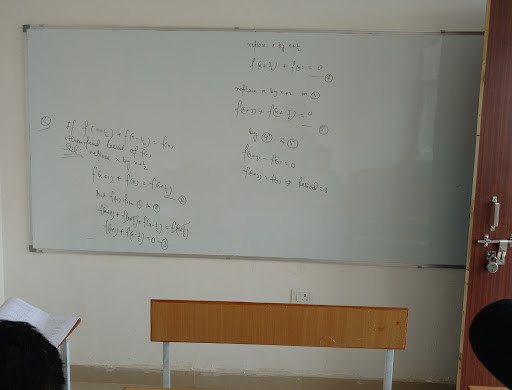 Q If f(x+½) + f(x-½) = f(x)
then find period of f(x)
SOL: replace x by x+½
f(x+1) + f(x) = f(x+½) — ②
Put f(x) from ① in ②
f(x+1) + f(x+½) + f(x-½) = f(x+½)
f(x+1) + f(x-½) = 0 — ③
replace x by x+½
f(x+3/2) + f(x) = 0 — ④
replace x by x+3/2 in
f(x+3) + f(x+3/2) = 0 — ⑤
by ④ & ⑤
f(x+3) - f(x) = 0
f(x+3) = f(x) ⇒ period = 3